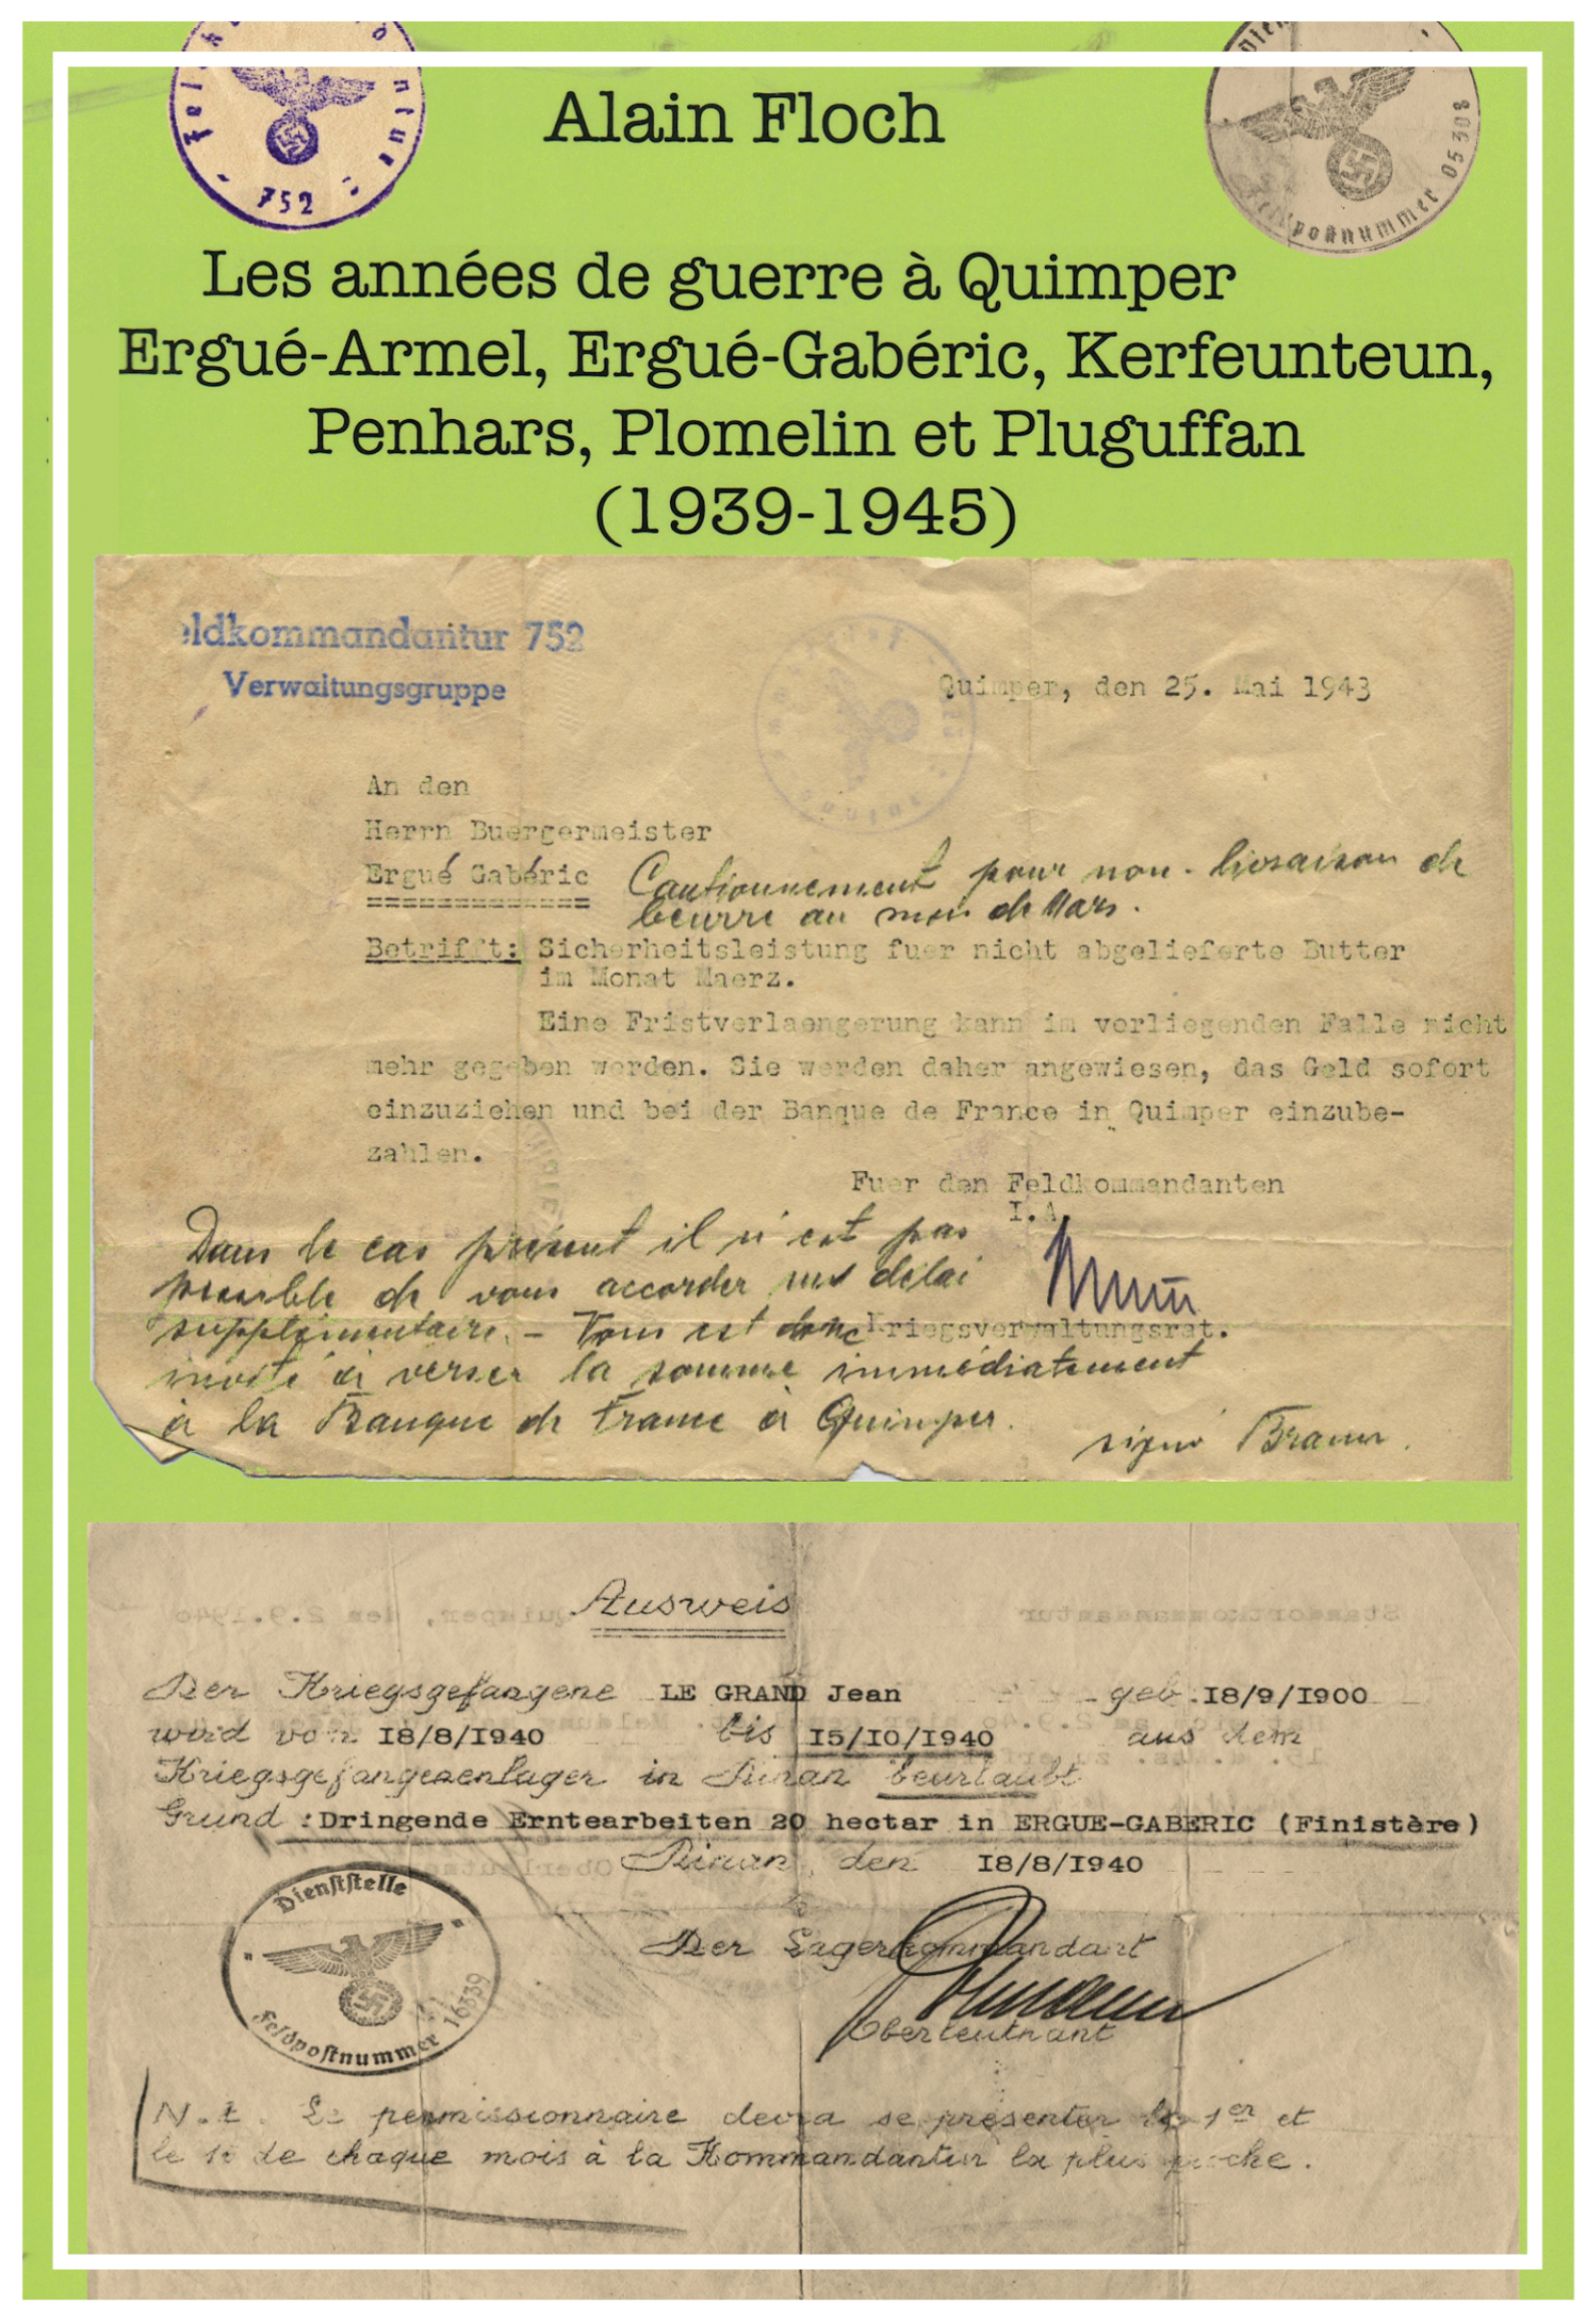 Alain Floch
752
Feldpostnummer 05308
Les années de guerre à Quimper
Ergué-Armel, Ergué-Gabéric, Kerfeunteun,
Penhars, Plomelin et Pluguffan
(1939-1945)
eldkommandantur 752
Verwaltungsgruppe
Quimper, den 25. Mai 1943
An den
Herrn Buergermeister
Ergué Gabéric
Cautionnement pour non-livraison de
beurre au mois de Mars.
Betrifft: Sicherheitsleistung fuer nicht abgelieferte Butter
im Monat Maerz.
Eine Fristverlaengerung kann im vorliegenden Falle nicht
mehr gegeben werden. Sie werden daher angewiesen, das Geld sofort
einzuziehen und bei der Banque de France in Quimper einzube-
zahlen.
Fuer den Feldkommandanten
I.A.
Kriegsverwaltungsrat.
Dans le cas présent il n'est pas
possible de vous accorder un délai
supplémentaire. - Vous est donc
invité à verser la somme immédiatement
à la Banque de France à Quimper.
signé Braun.
Stabsortkommandantur
Quimper, den 2.9.1940
Ausweis
Der Kriegsgefangene LE GRAND Jean geb. 18/9/1900
wird von 18/8/1940 bis 15/10/1940 aus dem
Kriegsgefangenenlager in Dinan beurlaubt
Grund : Dringende Erntearbeiten 20 hectar in ERGUE-GABERIC (Finistère)
Dinan, den 18/8/1940
Dienststelle
Feldpostnummer 16339
Der Lagerkommandant
Oberleutnant
Le permissionnaire devra se présenter le 1er et
le de chaque mois à la Kommandantur la plus proche.